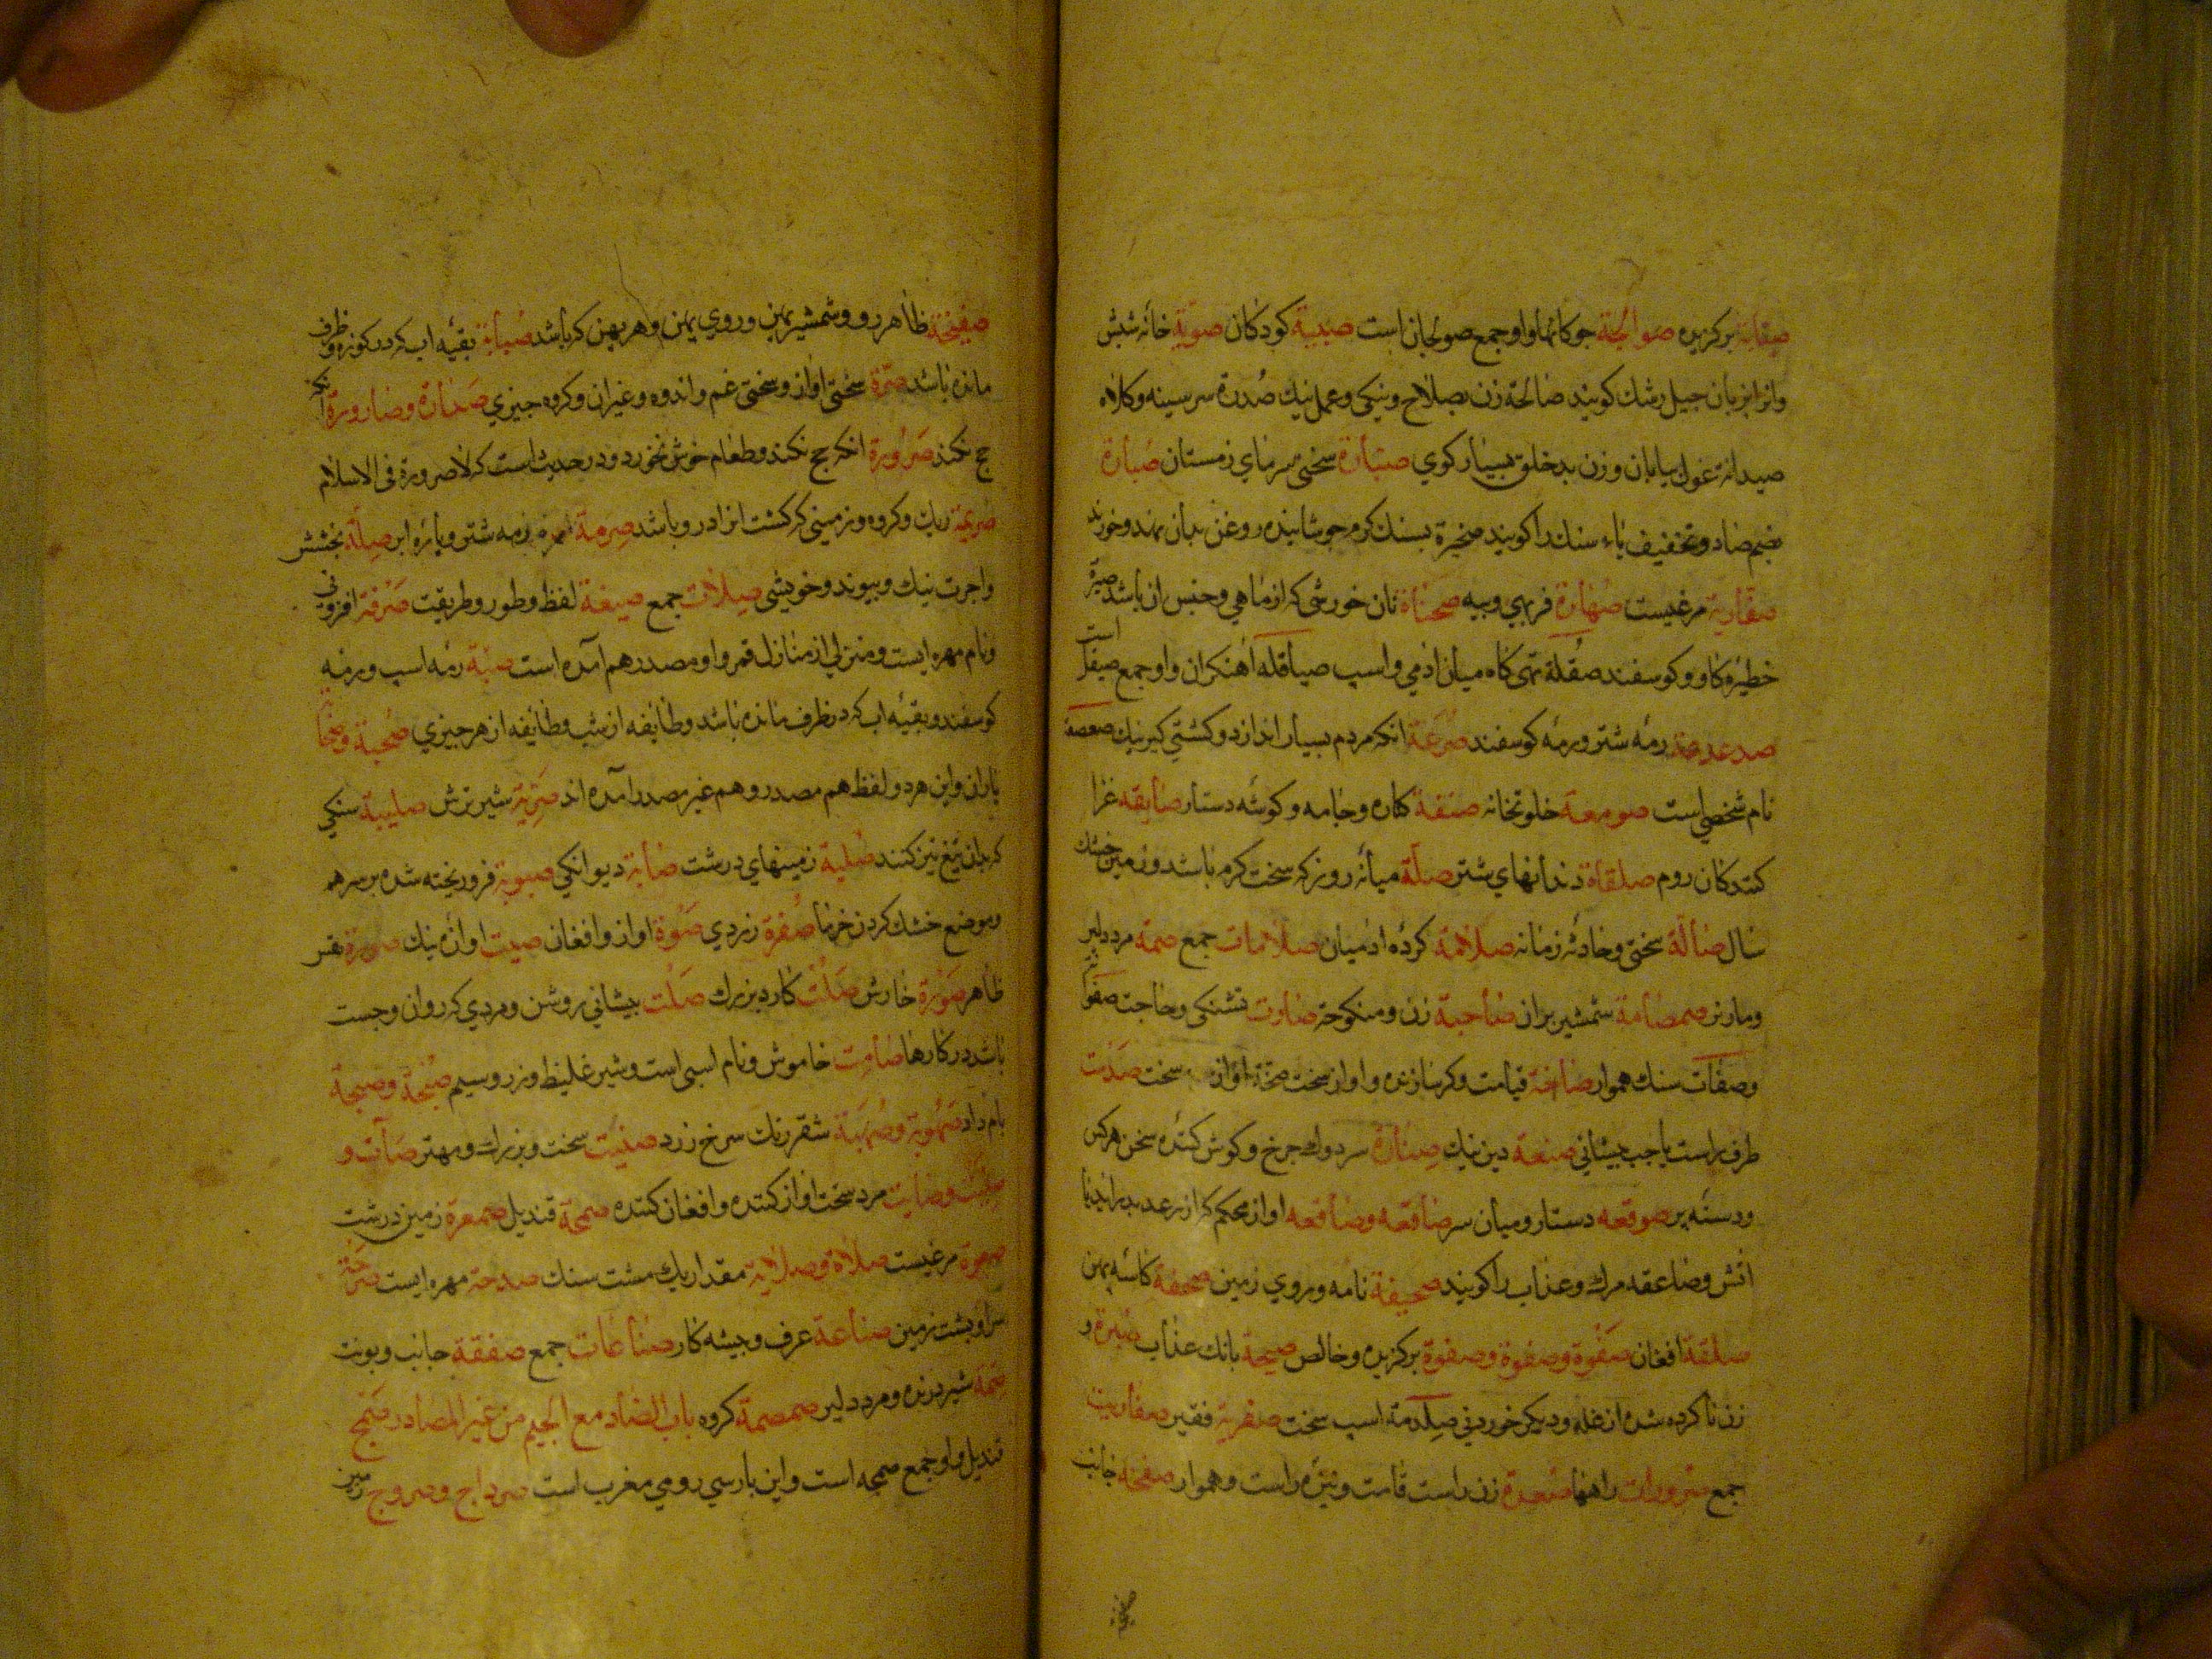 برکزیده صوالجة جوکانها واو جمع صولجان است صبیة کودکان صوبة خانه شبش
وانرا بزبان جیل رشك کویند صالحة زن بصلاح ونیکی وعمل نیك صدرة سر سینه وکلاه
صیدانة غول بیابان وزن بدخلق بسیار کوی صبارة سختی سرمای زمستان صبارة
بضم صاد وتخفیف باء سنك را کویند صخیرة بسنك کرم جوشانیده روغن بدان نهند وخورند
صقاریة مرغیست صهارة فربهی وپیه صحناة نان خورشی که از ماهی وجنس ان باشد صیرة
خطیره کاو وکوسفند صقلة تهی کاه میان ادمی واسب صیاقله اهنکران واو جمع صیقل است
رمه شتر ورمه کوسفند صرعة انکه مردم بسیار اندازد وکشتی کیر نیك صعصعة
نام شخصی است صومعة خلوتخانه صنفة کناره وجامه وکوشه دستار صایفه غزا
کنندکان روم صلقاة دندانهای شتر صلة میانه روز که سخت کرم باشد وزمین خشك
سال صالة سختی وحادثه زمانه صلامة کروه ادمیان صلامات جمع صمة مرد دلیر
ومار نر صمصامة شمشیر بران صاحبة زن ومنکوحه صاوت تشنکی وحاجت
وصفات سنك هموار صاخة قیامت وکر سازنده واواز سخت صخة اواز سخت صدت
طرف راست یا جب پیشانی صنعة دین نیك صنارة سر دوك جرخ وکوش کننده سخن هرکس
ودسته پر صوقعه دستار ومیان سر صاقعه وصاقعه اواز محکم که از رعد بدر اید با
اتش وصاعقه مرك وعذاب را کویند صحیفة نامه وروی زمین صحفة کاسه پهن
صلقة افغان صفوة وصفوة وصفوة برکزیده وخالص صیحة بانك عذاب صبرة و
زن نا کرده شده از غله ودیکر خوردنی صلدمة اسب سخت صفریة فقیر صفاریت
جمع راهها صعدة زن راست قامت ونیزه راست وهموار صفحة جانب
صفیحة ظاهر رو وشمشیر پهن وروی پهن وهر پهن که باشد صبابة بقیه اب که در کوزه وظرف
مانده باشد صرة سختی اواز وسختی غم واندوه وغیر ان وکروه جیزی صرارة وصارورة انکه
حج نکند صرورة انکه حج نکند وطعام خوش نخورد ودر حدیث است که لا صرورة فی الاسلام
صریمة ریك وکروه وزمینی که کشت انرا درو باشد صرمة رمه شتر وپاره ابر صلة بخشش
واجرت نیك وپیوند وخویشی صلات جمع صیغة لفظ وطور وطریقت صرفة افزونی
ونام مهره ایست ومنزلی از منازل قمر واو مصدر هم آمده است صبة رمه اسب ورمه
کوسفند وبقیه اب که در ظرف مانده باشد وطایفه از شب وطایفه از هر جیزی صحبة
یاران واین هر دو لفظ هم مصدر وهم غیر مصدر آمده اند صربة شیر ترش صلیبة سنکی
که بدان تیغ تیز کنند صلبة زمینهای درشت صابة دیوانکی صوبة فرو ریخته شده بر سر هم
وموضع خشك کردن خرما صفرة زردی صوة اواز وافغان صیت اوازه نیك صورة
ظاهر صورة خارش صلت کارد بزرك صلت پیشانی روشن ومردی که روان وجست
باشد در کارها صامت خاموش ونام اسبی است وشیر غلیظ وزر وسیم صبحة وصبحة
بامداد صهوبة وصهبة شقر رنك سرخ زرد صنتیت سخت وبزرك ومهتر صات و
صیت وصایت مرد سخت اواز کننده وافغان کننده صمجة قندیل صمعرة زمین درشت
صعوة مرغیست صلاة وصلایة مقدار یك مشت سنك صدحة مهره ایست صرحة
سرا وپشت زمین صناعة عرف وپیشه کار صناعات جمع صفقة جانب ونوبت
صمة شیر درنده ومرد دلیر صمصمة کروه باب الصاد مع الجیم من غیر المصادر صمج
قندیل واو جمع صمجه است واین پارسی رومی معرب است صرداج وصروج زمین